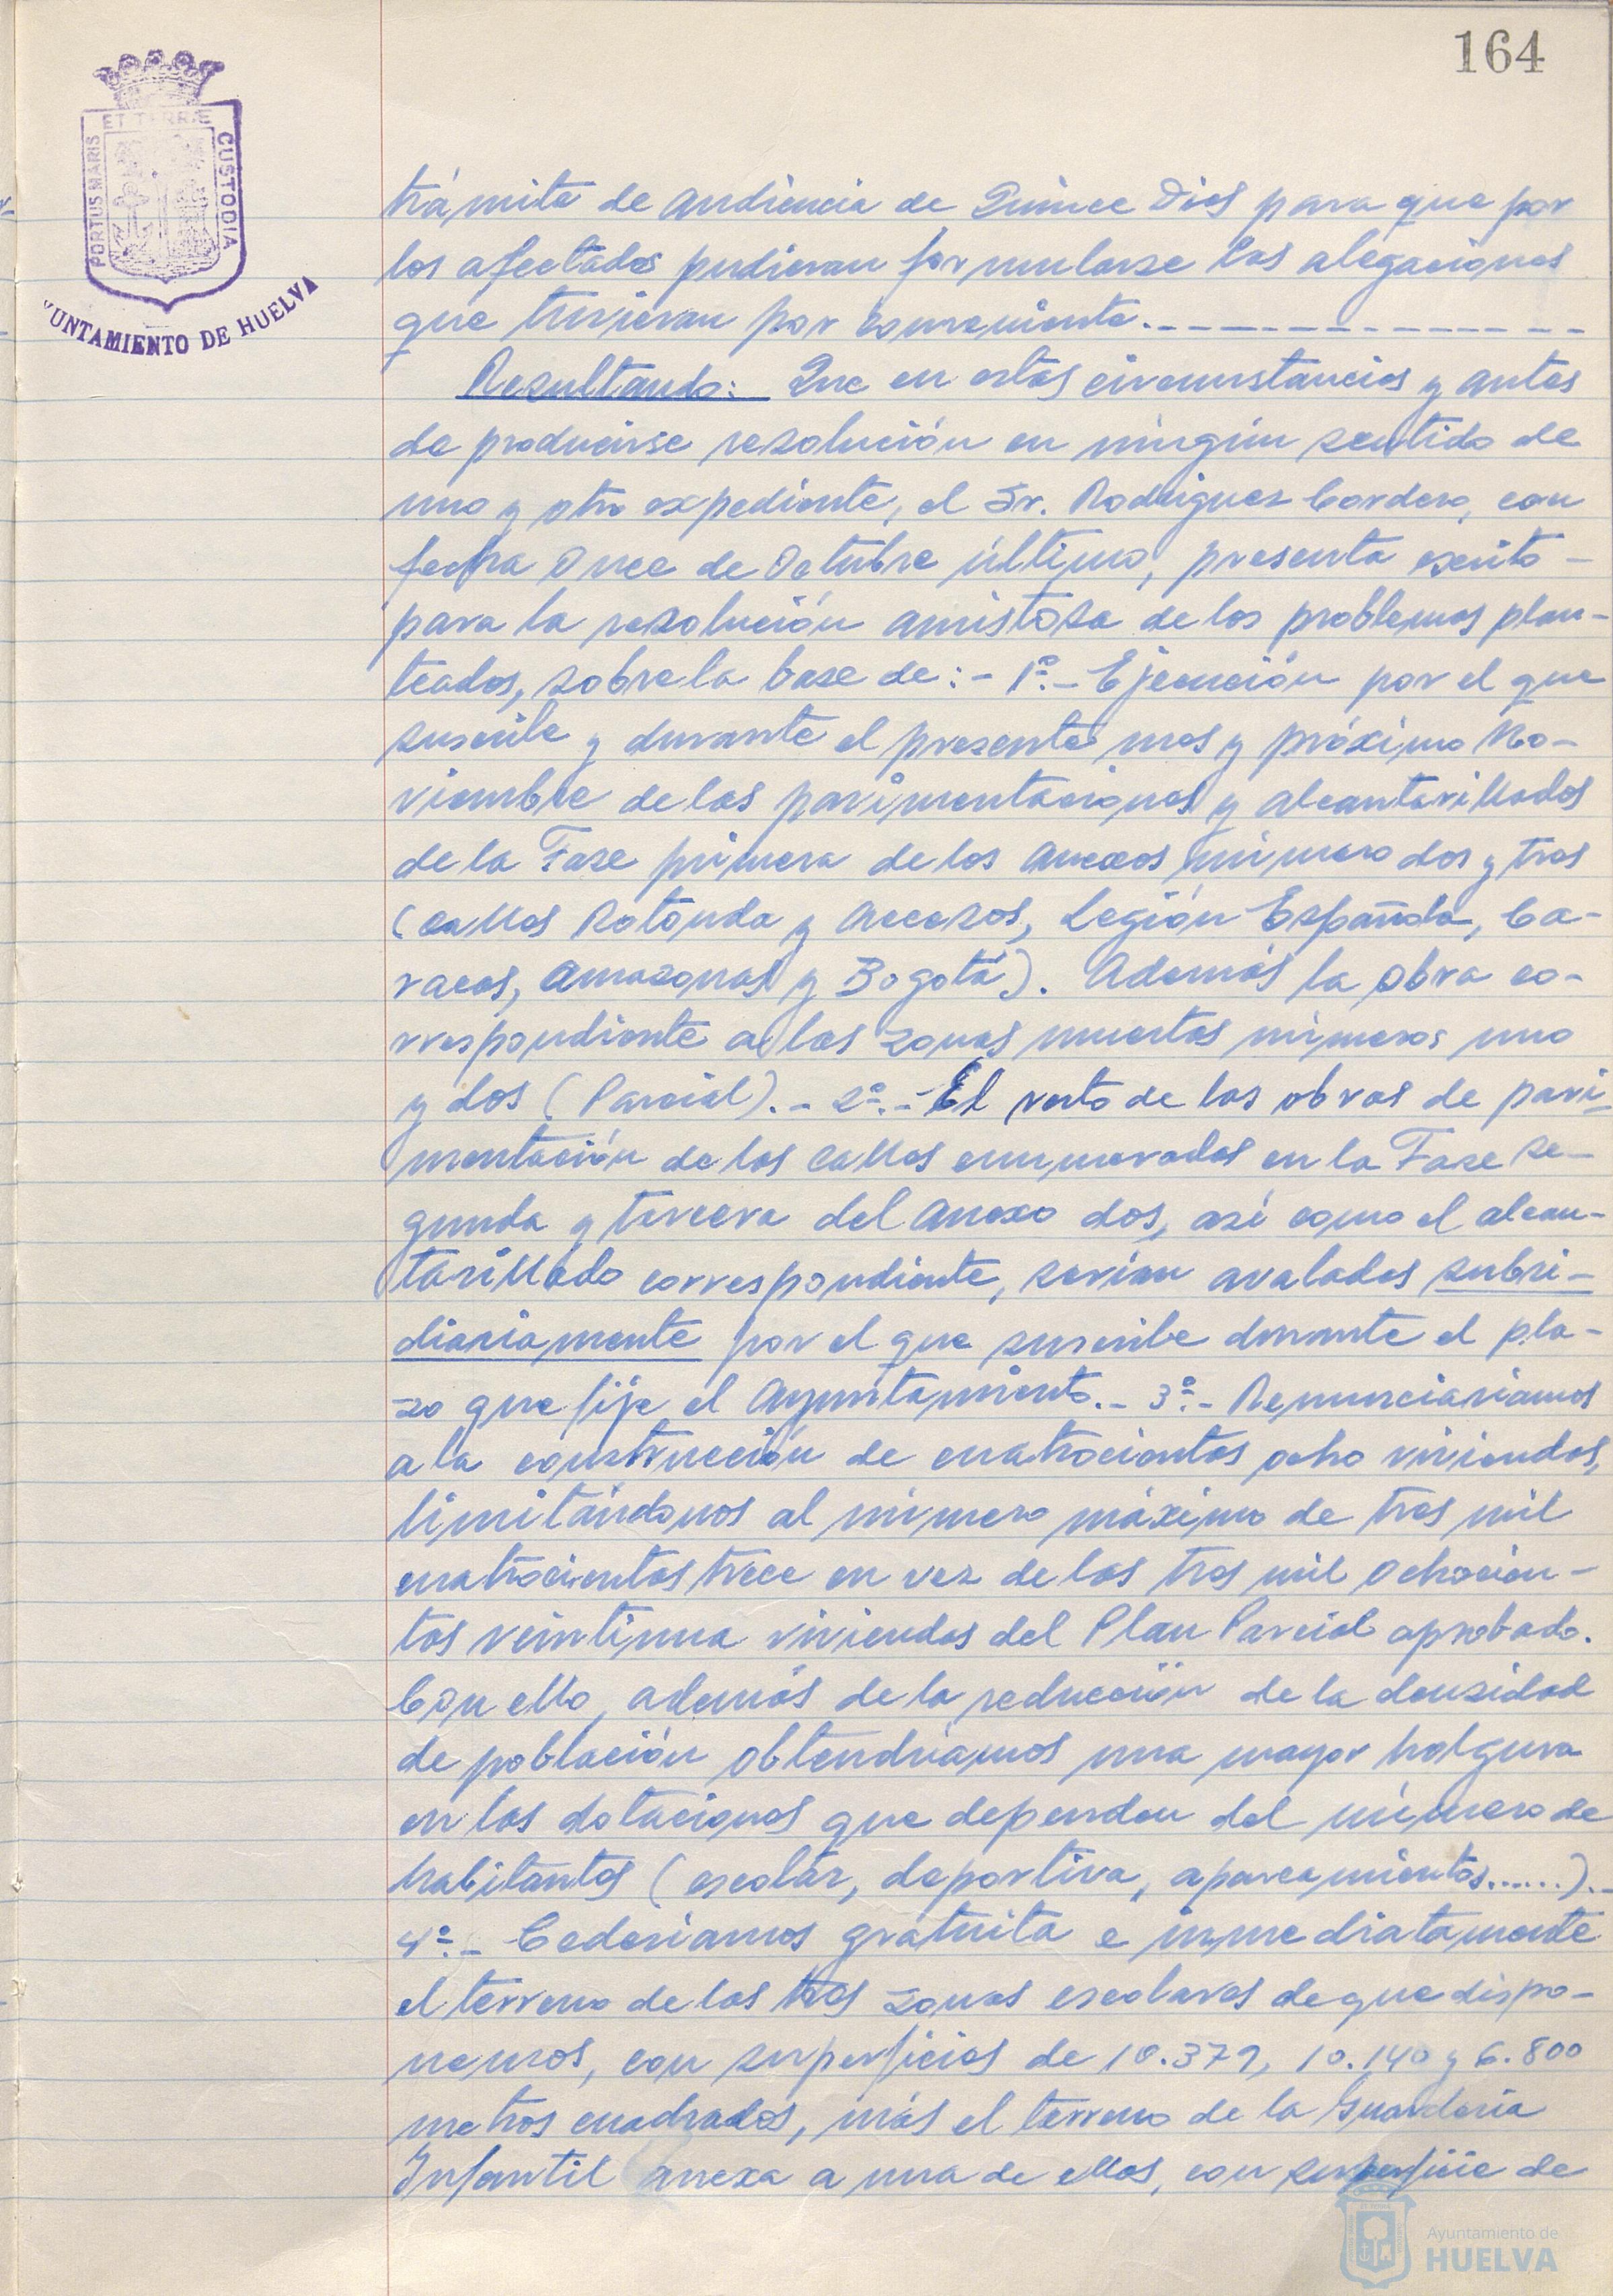 164
PORTUS MARIS ET TERRÆ CUSTODIA
AYUNTAMIENTO DE HUELVA
trámite de audiencia de Quince Dias para que por
los afectados pudieran formularse las alegaciones
que tuvieran por conveniente.
Resultando: Que en estas circunstancias y antes
de producirse resolución en ningún sentido de
uno y otro expediente, el Sr. Rodriguez Cordero, con
fecha Once de Octubre último, presenta escrito -
para la resolución amistosa de los problemas plan-
teados, sobre la base de: - 1º.- Ejecución por el que
suscribe y durante el presente mes y próximo No-
viembre de las pavimentaciones y alcantarillados
de la Fase primera de los Anexos número dos y tres
(calles Rotonda y Accesos, Legión Española, Ca-
racas, Amazonas y Bogotá). Además la obra co-
rrespondiente a las zonas muertas números uno
y dos (Parcial).- 2º.- El resto de las obras de pavi-
mentación de las calles enumeradas en la Fase se-
gunda y tercera del Anexo dos, así como el alcan-
tarillado correspondiente, serían avaladas subsi-
diariamente por el que suscribe durante el pla-
zo que fije el Ayuntamiento.- 3º.- Renunciariamos
a la construcción de cuatrocientas ocho viviendas,
limitándonos al número máximo de tres mil
cuatrocientas trece en vez de las tres mil ochocien-
tas veintiuna viviendas del Plan Parcial aprobado.
Con ello, además de la reducción de la densidad
de población obtendríamos una mayor holgura
en las dotaciones que dependen del número de
habitantes (escolar, deportiva, aparcamientos......).-
4º.- Cederiamos gratuita e inmediatamente
el terreno de las tres zonas escolares de que dispo-
nemos, con superficies de 10.379, 10.140 y 6.800
metros cuadrados, más el terreno de la Guardería
Infantil anexa a una de ellas, con superficie de
Ayuntamiento de
HUELVA